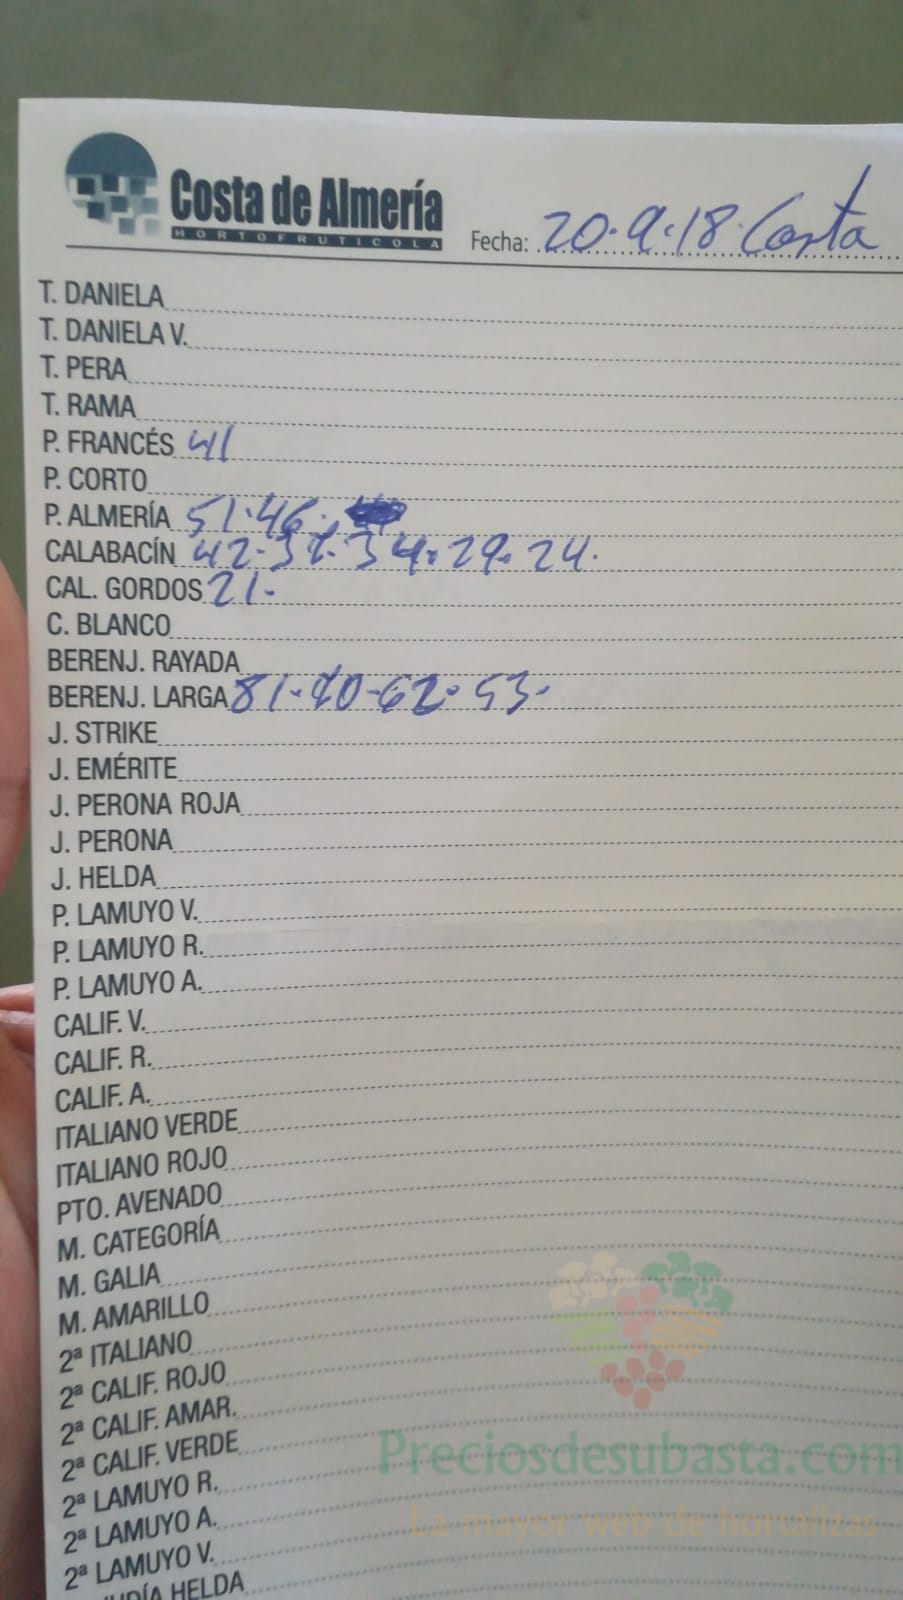 Costa de Almería
HORTOFRUTICOLA
Fecha: 20.9.18. Costa
T. DANIELA
T. DANIELA V.
T. PERA
T. RAMA
P. FRANCÉS 41
P. CORTO
P. ALMERÍA 51.46.
CALABACÍN 42.37.34.29.24.
CAL. GORDOS 21.
C. BLANCO
BERENJ. RAYADA
BERENJ. LARGA 81.70-62.53.
J. STRIKE
J. EMÉRITE
J. PERONA ROJA
J. PERONA
J. HELDA
P. LAMUYO V.
P. LAMUYO R.
P. LAMUYO A.
CALIF. V.
CALIF. R.
CALIF. A.
ITALIANO VERDE
ITALIANO ROJO
PTO. AVENADO
M. CATEGORÍA
M. GALIA
M. AMARILLO
2ª ITALIANO
2ª CALIF. ROJO
2ª CALIF. AMAR.
2ª CALIF. VERDE
2ª LAMUYO R.
2ª LAMUYO A.
2ª LAMUYO V.
HELDA
Preciosdesubasta.com
La mayor web de hortalizas